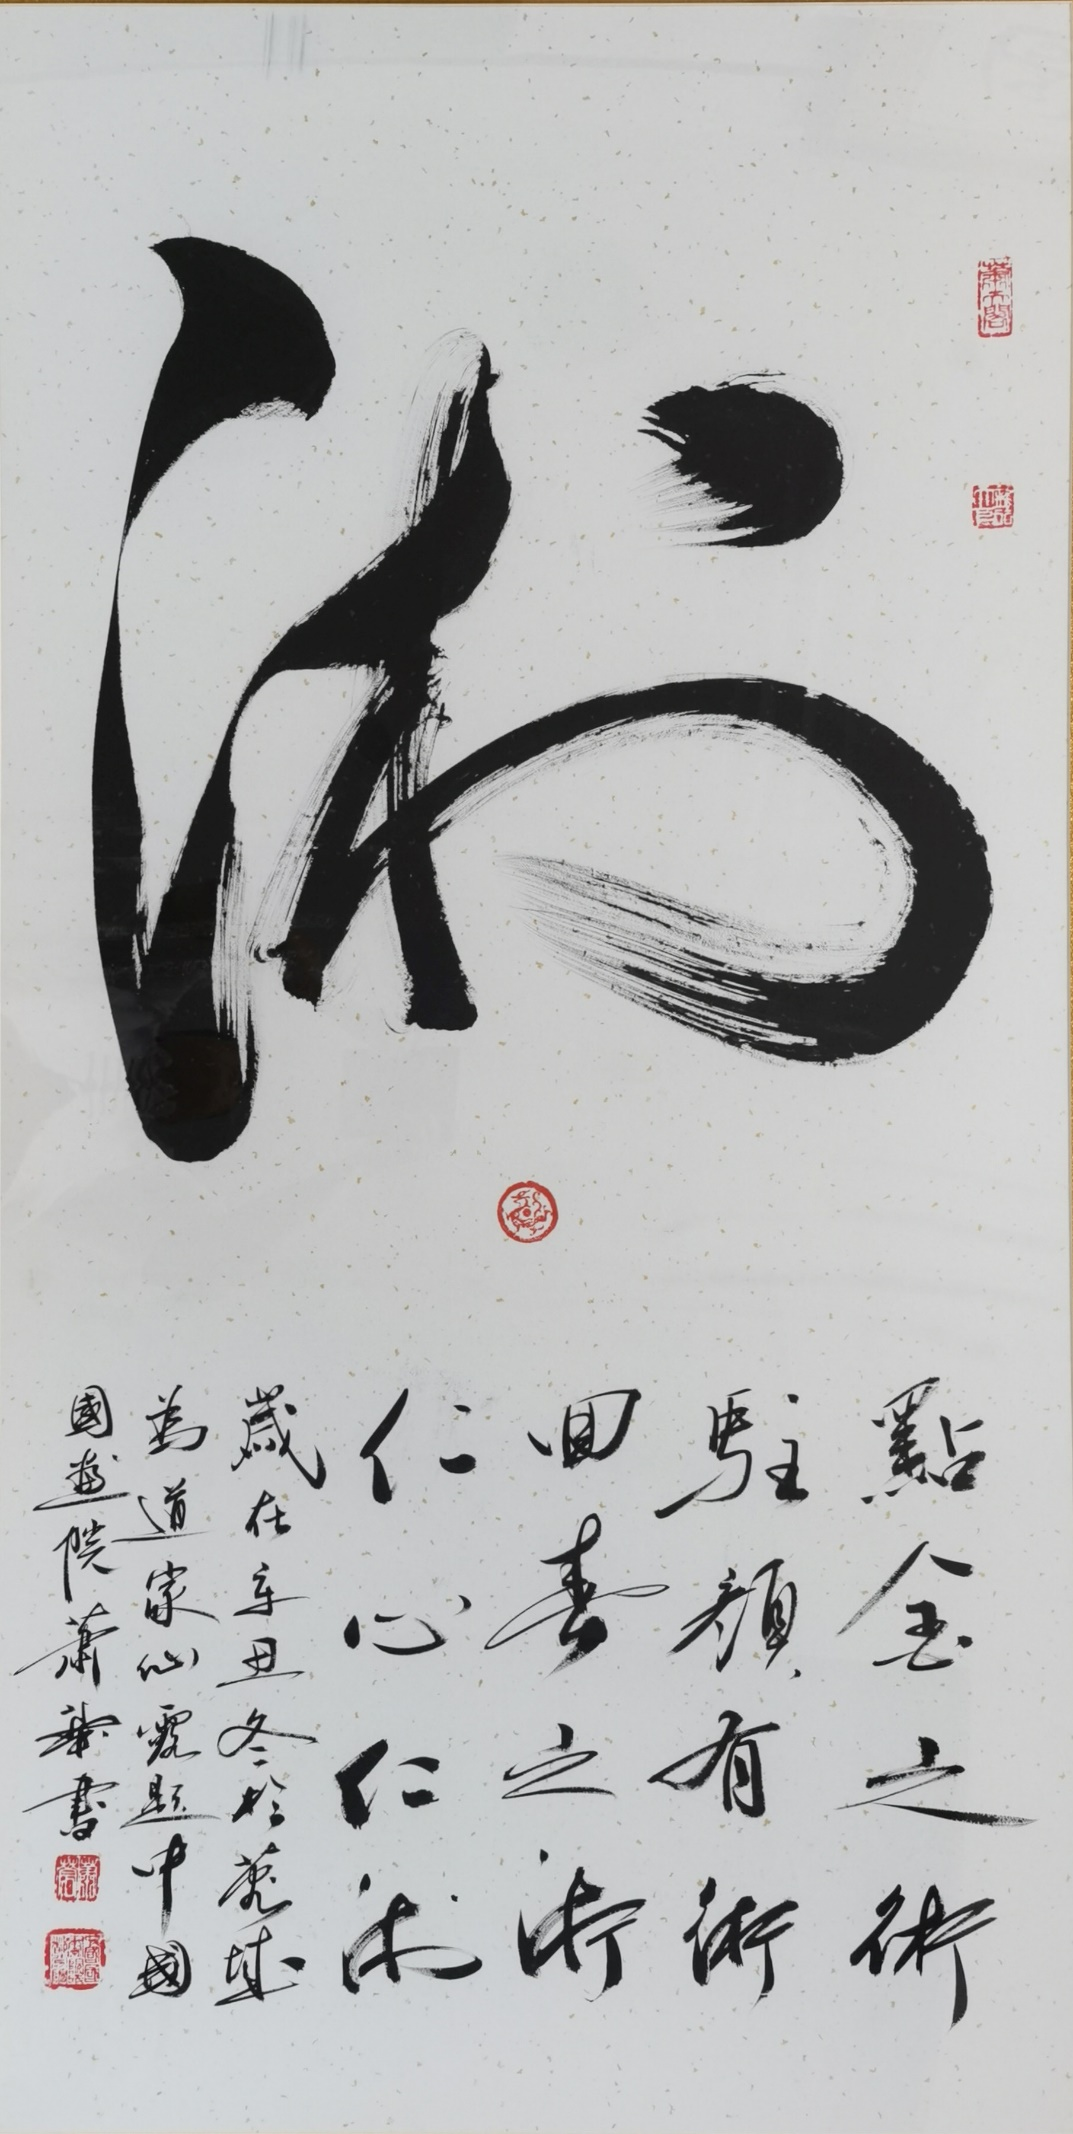 術
點金之術
駐顏有術
回春之術
仁心仁術
歲在辛丑冬於蓉城
為道家仙霞題中國
國畫院蕭　書